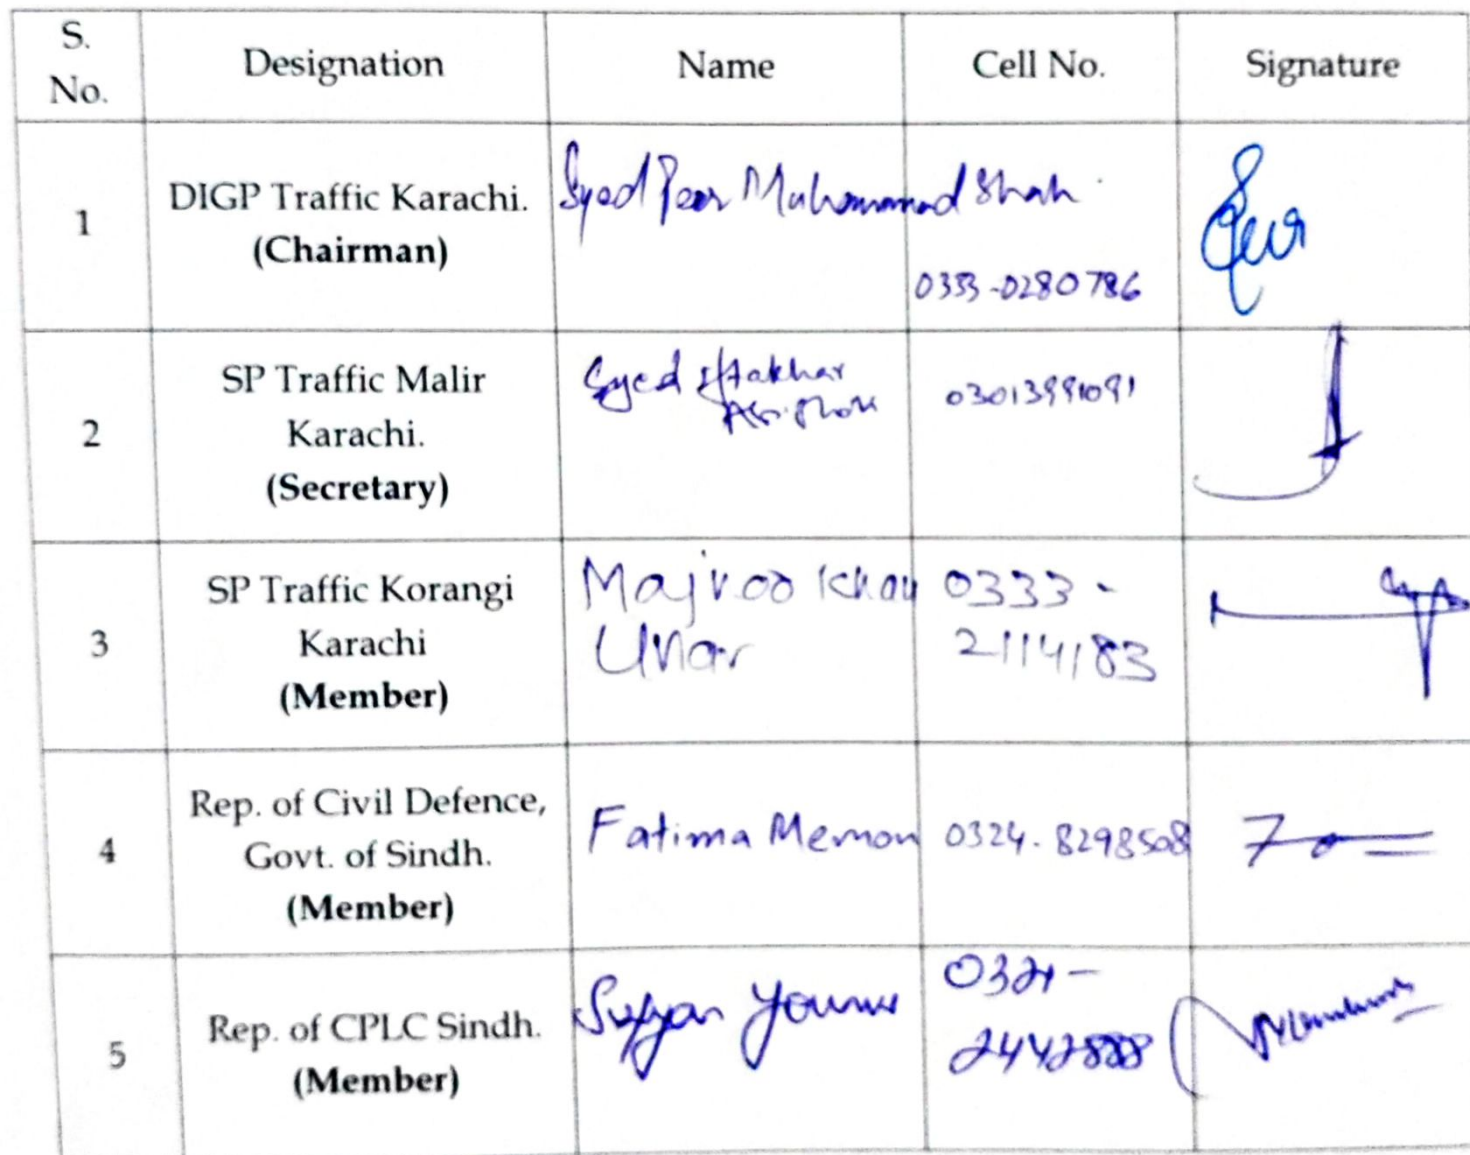 S.
No.
Designation
Name
Cell No.
Signature
1
DIGP Traffic Karachi.
(Chairman)
Syed Peer Muhammad Shah
0333-0280786
2
SP Traffic Malir
Karachi.
(Secretary)
Syed Iftakhar
03013991091
3
SP Traffic Korangi
Karachi
(Member)
Majroo Khan
Unar
0333-
2114183
4
Rep. of Civil Defence,
Govt. of Sindh.
(Member)
Fatima Memon
0324-8298508
5
Rep. of CPLC Sindh.
(Member)
Sufyan Younus
0321-
2442888